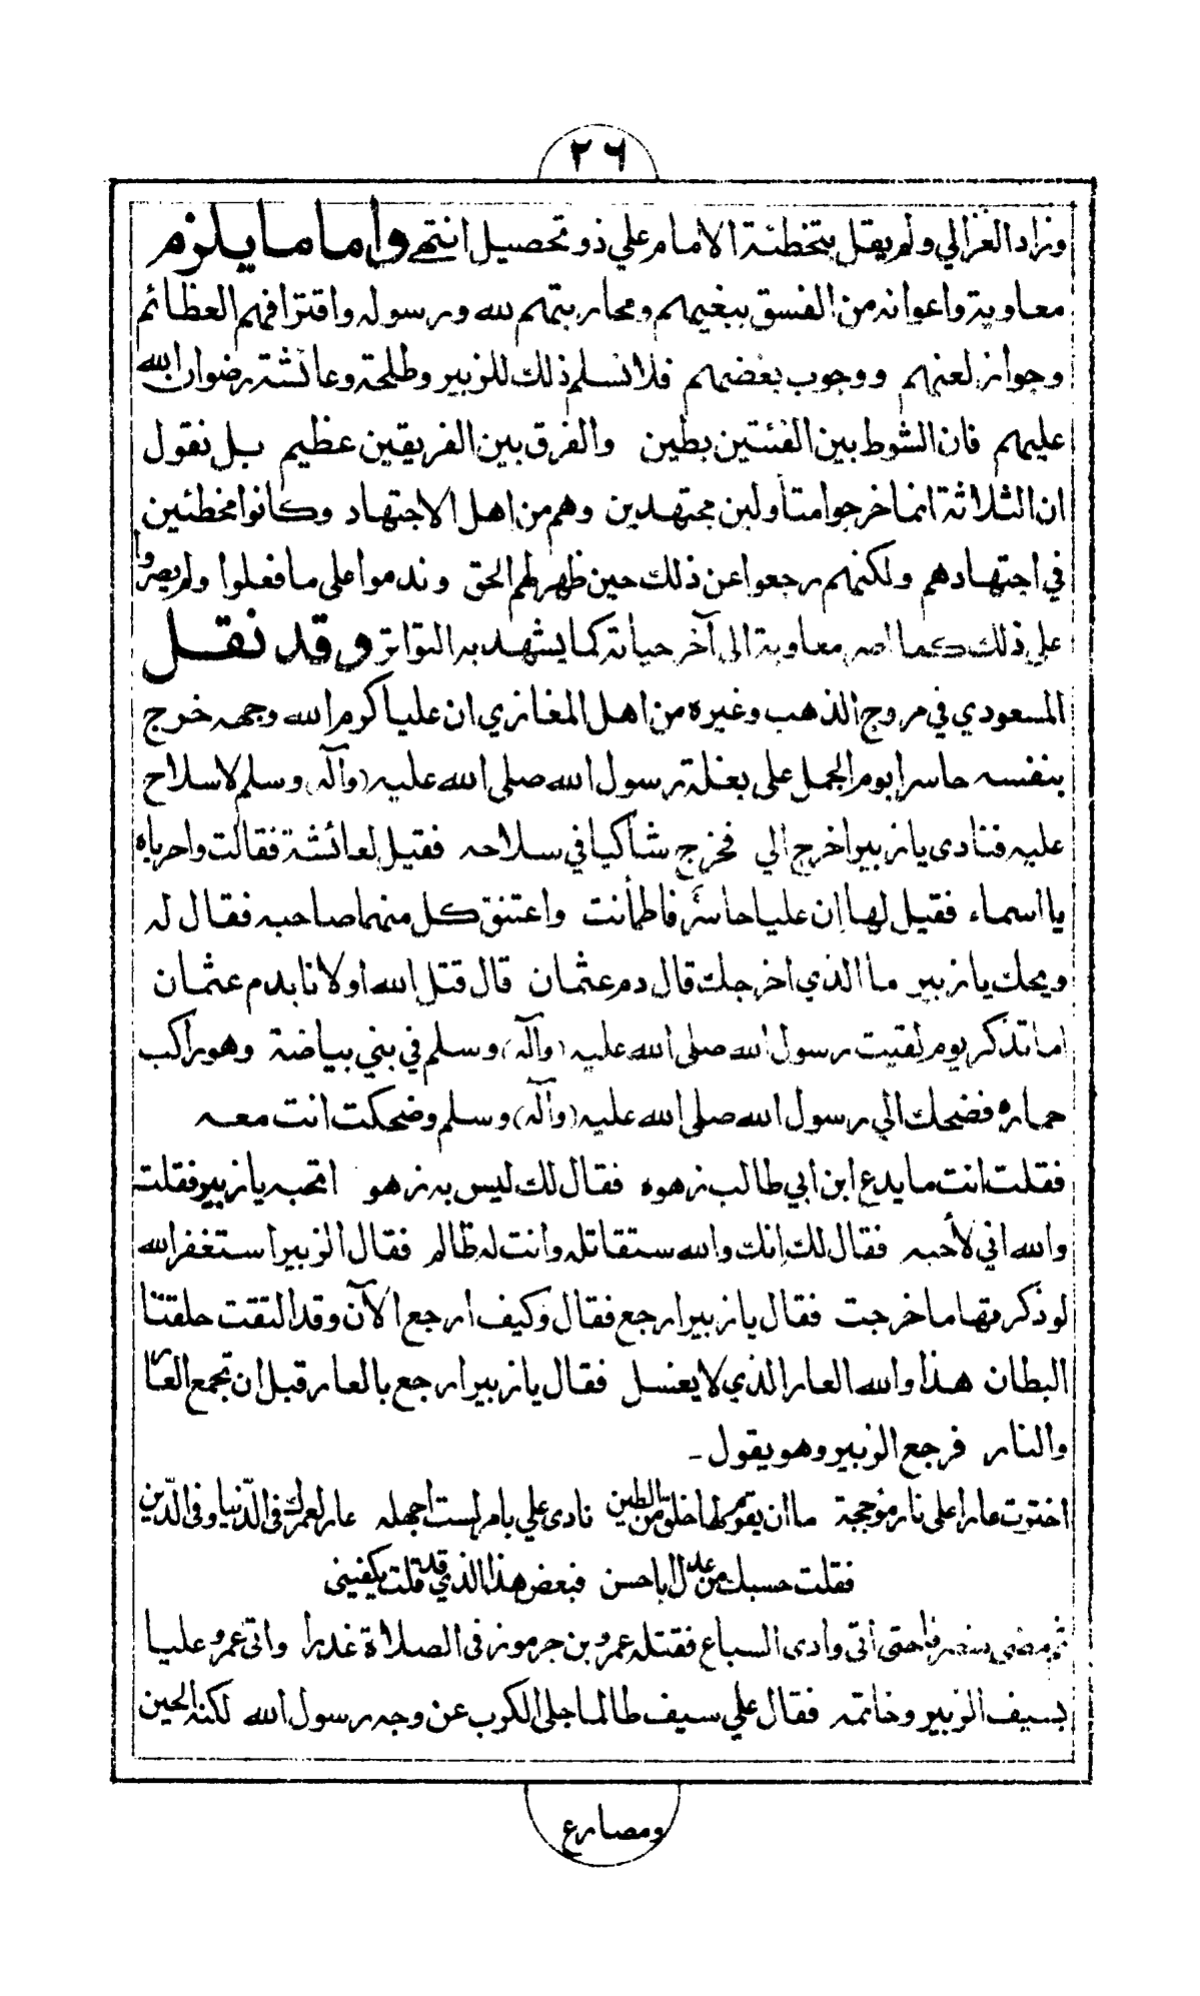 ٢٦
وزاد الغزالي ولم يقل بتخطئة الامام علي ذو تحصيل انتهى واما ما يلزم
معاوية واعوانه من الفسق ببغيهم ومحاربتهم لله ورسوله واقترافهم العظائم
وجواز لعنهم ووجوب بغضهم فلا نسلم ذلك للزبير وطلحة وعائشة رضوان الله
عليهم فان الشوط بين الفئتين بطين والفرق بين الفريقين عظيم بل نقول
ان الثلاثة انما خرجوا متأولين مجتهدين وهم من اهل الاجتهاد وكانوا مخطئين
في اجتهادهم ولكنهم رجعوا عن ذلك حين ظهر لهم الحق وندموا على ما فعلوا ولم يصروا
على ذلك كما اصر معاوية الى آخر حياته كما يشهد به التواتر وقد نقل
المسعودي في مروج الذهب وغيره من اهل المغازي ان عليا كرم الله وجهه خرج
بنفسه حاسرا يوم الجمل على بغلة رسول الله صلى الله عليه (وآله) وسلم لا سلاح
عليه فنادى يا زبير اخرج الي فخرج شاكيا في سلاحه فقيل لعائشة فقالت واحرباه
يا اسماء فقيل لها إن عليا حاسر فاطمأنت واعتنق كل منهما صاحبه فقال له
ويحك يا زبير ما الذي اخرجك قال دم عثمان قال قتل الله اولانا بدم عثمان
اما تذكر يوم لقيت رسول الله صلى الله عليه (وآله) وسلم في بني بياضة وهو راكب
حماره فضحك الي رسول الله صلى الله عليه (وآله) وسلم وضحكت انت معه
فقلت انت ما يدع ابن ابي طالب زهوه فقال لك ليس به زهو اتحبه يا زبير فقلت
والله اني لأحبه فقال لك إنك والله ستقاتله وانت له ظالم فقال الزبير استغفر الله
لو ذكرتها ما خرجت فقال يا زبير ارجع فقال وكيف ارجع الآن وقد التقت حلقتا
البطان هذا والله العار الذي لا يغسل فقال يا زبير ارجع بالعار قبل ان تجمع العار
والنار فرجع الزبير وهو يقول -
اخترت عارا على نار مؤججة ما ان يقوم لها خلق من الطين نادى علي بامر لست اجهله عار لعمرك في الدّنيا وفى الدّين
فقلت حسبك من عدل ابا حسن فبعض هذا الذي قد قلت يكفيني
ثم مضى منصرفا حتى أتى وادى السباع فقتله عمرو بن جرموز في الصلاة غدرا واتى عمرو عليا
بسيف الزبير وخاتمه فقال علي سيف طالما جلى الكرب عن وجه رسول الله لكنه الحين
ومصارع